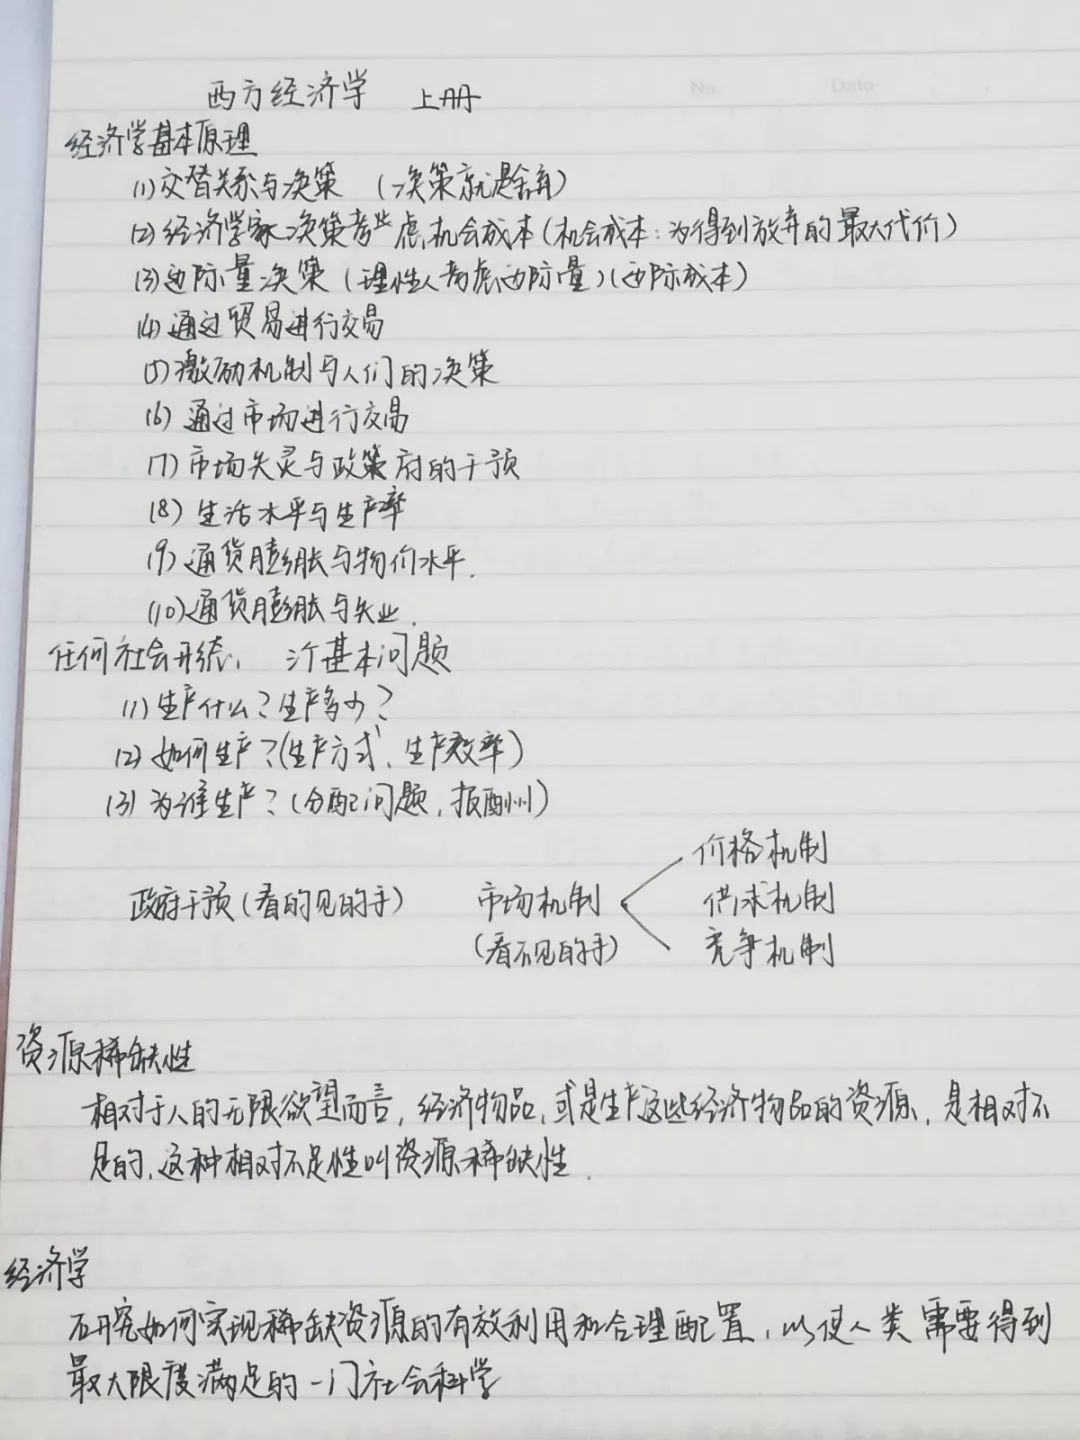 No   Date
西方经济学 上册
经济学基本原理
(1) 交替关系与决策 (决策就是舍弃)
(2) 经济学家决策考虑机会成本(机会成本:为得到放弃的最大代价)
(3) 边际量决策(理性人考虑边际量)(边际成本)
(4) 通过贸易进行交易
(5) 激励机制与人们的决策
(6) 通过市场进行交易
(7) 市场失灵与政策府的干预
(8) 生活水平与生产率
(9) 通货膨胀与物价水平.
(10) 通货膨胀与失业.
任何社会形态, 三个基本问题
(1) 生产什么?生产多少?
(2) 如何生产?(生产方式、生产效率)
(3) 为谁生产?(分配问题,报酬)
政府干预(看的见的手) 市场机制 价格机制
供求机制
(看不见的手) 竞争机制
资源稀缺性
相对于人的无限欲望而言,经济物品,或是生产这些经济物品的资源,是相对不
足的,这种相对不足性叫资源稀缺性.
经济学
研究如何实现稀缺资源的有效利用和合理配置,以使人类需要得到
最大限度满足的一门社会科学